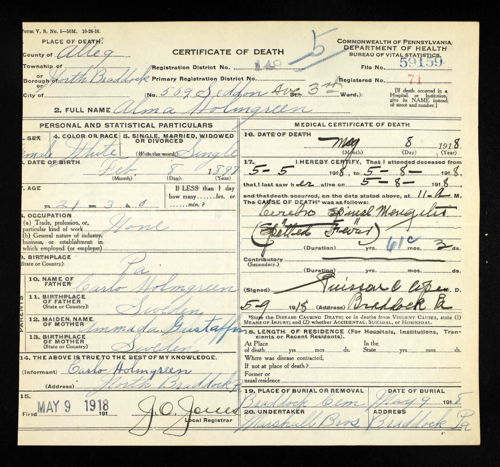 Form V. S. No. 5—50M. 10-26-16
PLACE OF DEATH
County of Alleg
Township of
Borough of North Braddock
City of
CERTIFICATE OF DEATH
Registration District No. 149
Primary Registration District No.
No. 509 Seddon Ave 3rd Ward.
5
COMMONWEALTH OF PENNSYLVANIA
DEPARTMENT OF HEALTH
BUREAU OF VITAL STATISTICS
File No. 59159
Registered No. 71
[If death occurred in a Hospital or Institution, give its NAME instead of street and number.]
2. FULL NAME Alma Holmgreen
PERSONAL AND STATISTICAL PARTICULARS
3. SEX
4. COLOR OR RACE White
5. SINGLE, MARRIED, WIDOWED OR DIVORCED Single
DATE OF BIRTH
Feb 8 1897
(Month) (Day) (Year)
7. AGE
21 - 3 - 0
IF LESS than 1 day how many
8. OCCUPATION
(a) Trade, profession, or particular kind of work Home
(b) General nature of industry, business, or establishment in which employed (or employer)
9. BIRTHPLACE
(State or Country) Pa
10. NAME OF FATHER Carlo Holmgreen
11. BIRTHPLACE OF FATHER
(State or Country) Sweden
12. MAIDEN NAME OF MOTHER
13. BIRTHPLACE OF MOTHER
(State or Country) Sweden
14. THE ABOVE IS TRUE TO THE BEST OF MY KNOWLEDGE.
(Informant) Carlo Holmgreen
(Address) North Braddock
15.
MAY 9 1918
J. O. Jones
Local Registrar
MEDICAL CERTIFICATE OF DEATH
16. DATE OF DEATH
May 8 1918
(Month) (Day) (Year)
17. I HEREBY CERTIFY, That I attended deceased from
5-5 1918, to 5-8- 1918
that I last saw her alive on 5-8- 1918
and that death occurred, on the date stated above, at
The CAUSE OF DEATH was as follows:
Cerebro Spinal
(Spotted Fever)
61c
(Duration) yrs. mos. 3
Contributory
(Secondary)
(Duration) yrs. mos.
(Signed)
5-9 1918 (Address) Braddock Pa
*State the DISEASE CAUSING DEATH; or in deaths from VIOLENT CAUSES, state (1) MEANS OF INJURY; and (2) whether ACCIDENTAL, SUICIDAL, or HOMICIDAL.
18. LENGTH OF RESIDENCE (For Hospitals, Institutions, Transients or Recent Residents).
At Place of death yrs. mos. ds. In the State yrs. mos. ds.
Where was disease contracted, if not at place of death?
Former or usual residence
19. PLACE OF BURIAL OR REMOVAL
Braddock Cem
DATE of BURIAL
May 9 1918
20. UNDERTAKER
Marshall Bros
ADDRESS
Braddock Pa